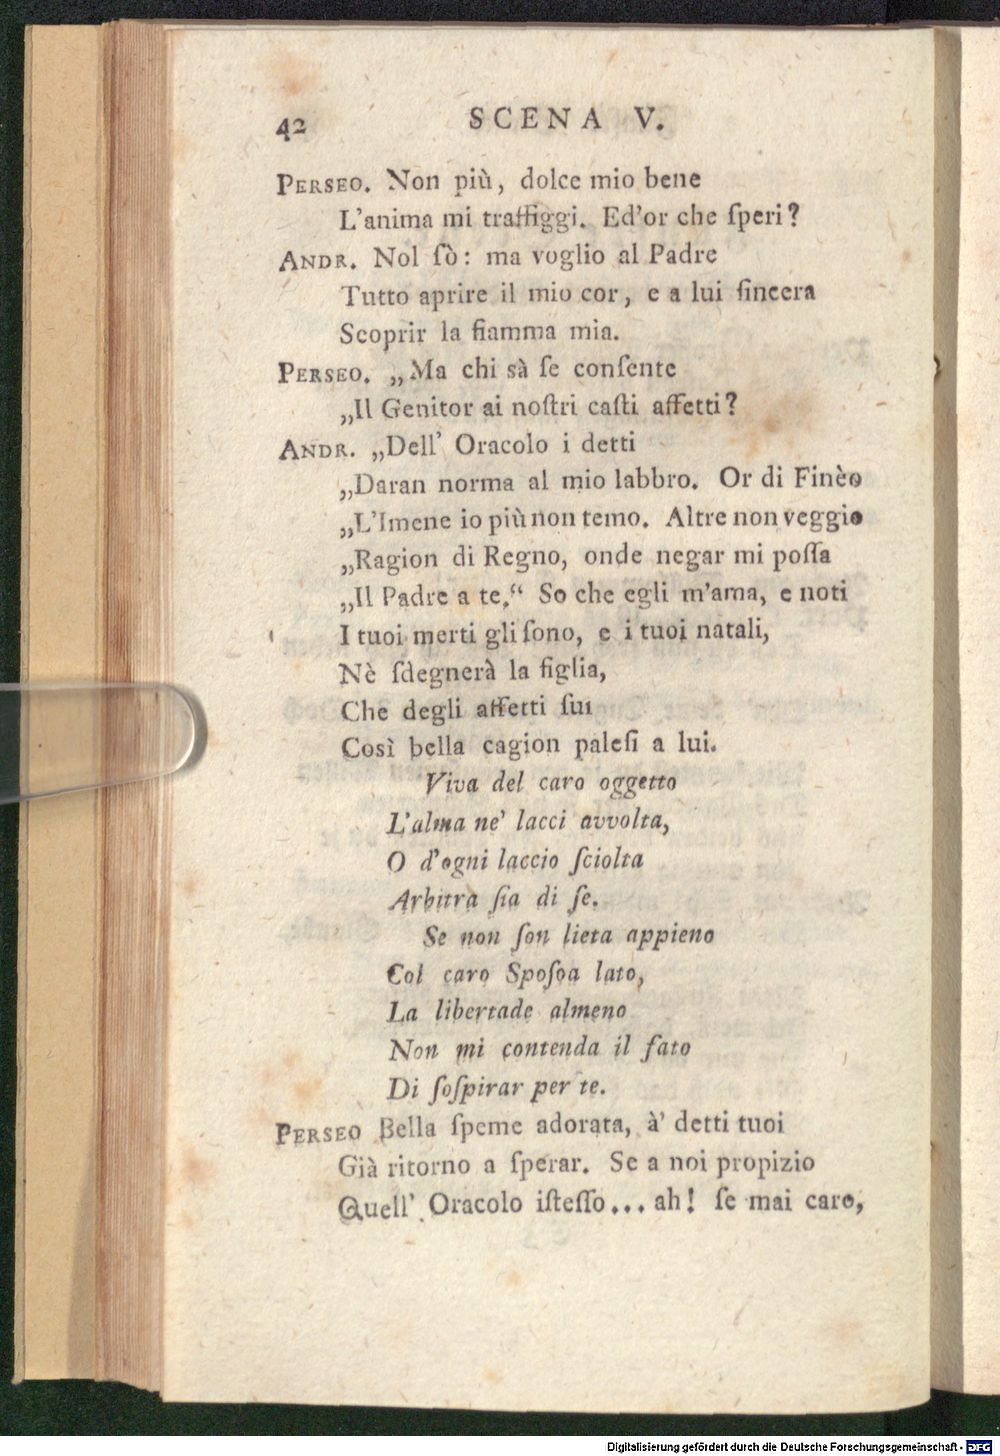 42 SCENA V.
PERSEO. Non più, dolce mio bene
L'anima mi traffiggi. Ed'or che ſperi?
ANDR. Nol ſò: ma voglio al Padre
Tutto aprire il mio cor, e a lui ſincera
Scoprir la fiamma mia.
PERSEO. „Ma chi sà ſe conſente
„Il Genitor ai noſtri caſti affetti?
ANDR. „Dell' Oracolo i detti
„Daran norma al mio labbro. Or di Finèo
„L'Imene io più non temo. Altre non veggio
„Ragion di Regno, onde negar mi poſſa
„Il Padre a te.“ So che egli m'ama, e noti
I tuoi merti gli ſono, e i tuoi natali,
Nè ſdegnerà la figlia,
Che degli affetti ſui
Così bella cagion paleſi a lui.
Viva del caro oggetto
L'alma ne' lacci avvolta,
O d'ogni laccio ſciolta
Arbitra ſia di ſe.
Se non ſon lieta appieno
Col caro Spoſoa lato,
La libertade almeno
Non mi contenda il fato
Di ſoſpirar per te.
PERSEO Bella ſpeme adorata, à' detti tuoi
Già ritorno a ſperar. Se a noi propizio
Quell' Oracolo iſteſſo... ah! ſe mai caro,
Digitalisierung gefördert durch die Deutsche Forschungsgemeinschaft - DFG